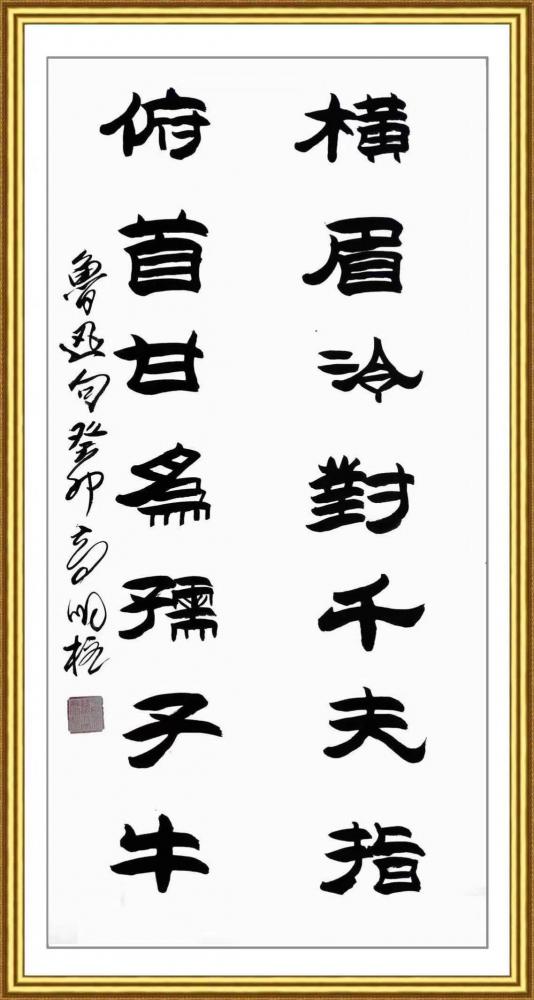 横眉冷對千夫指
俯首甘為孺子牛
魯迅句癸卯高明柱